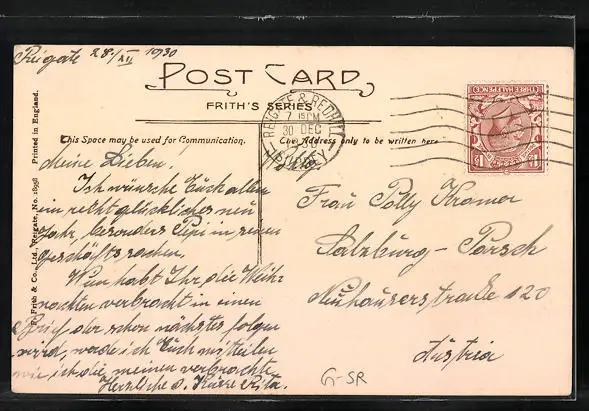 Reigate 28/XII 1930
POST CARD
FRITH'S SERIES
This Space may be used for Communication.
The Address only to be written here
Printed in England.
F. Frith & Co., Ltd., Reigate, No.
REIGATE & REDHILL
7 15 PM
30 DEC
SURREY
THREE HALFPENCE
Meine Lieben.
Ich wünsche Euch allen
ein recht glückliches neu
Jahr, besonders Pepi in seinen
Geschäftssachen.
Wie habt Ihr die Weih-
nachten verbracht in einen
Brief der schon nächstes folgen
wird, werde ich Euch mitteilen
wie ich die meinen verbrachte
Herzliche Küsse Rita.
Frau Polly Kramer
Salzburg - Parsch
Neuhauserstraße 120
Austria
G-SR